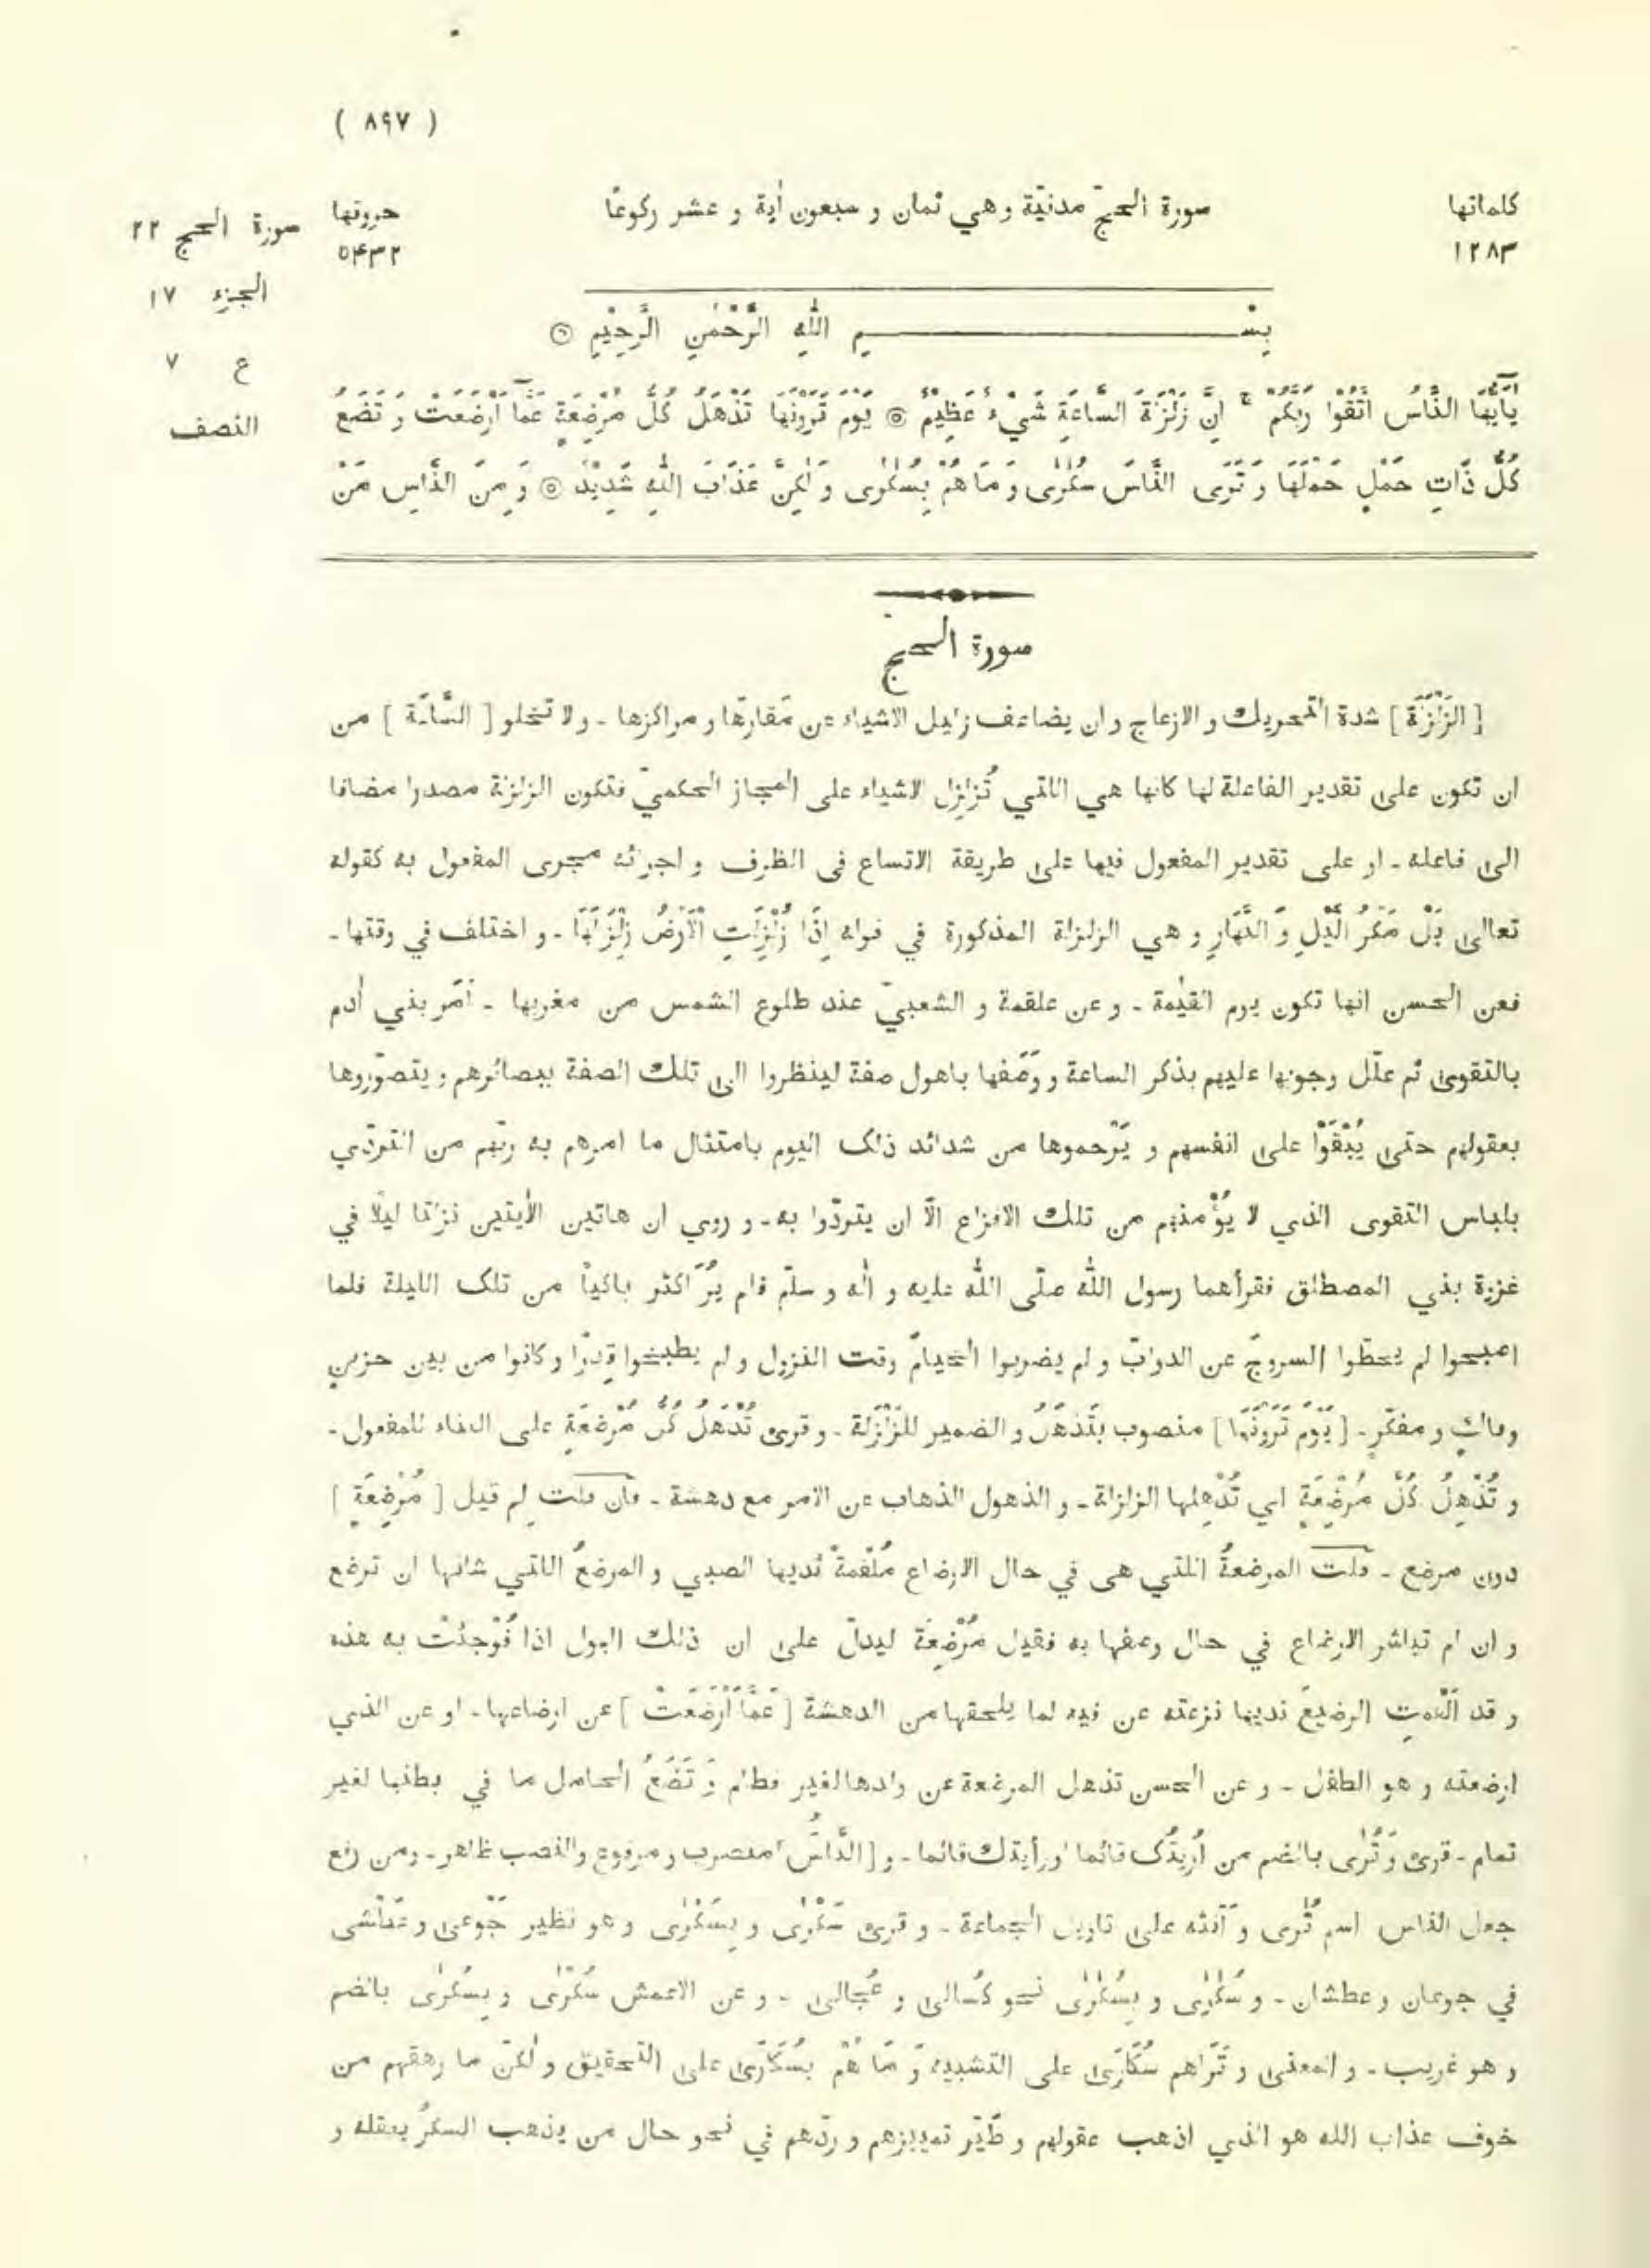 ( ٨٩٧ )
كلماتها
١٢٨٣
سورة الحجّ مدنيّة وهي ثمان و سبعون أية و عشر ركوعاً
حروفها
٥۴٣٢
سورة الحج ٢٢
الجزء ١٧
ع ٧
النصف
بِسْمِ اللّٰهِ الرَّحْمٰنِ الرَّحِيْمِ
يٰٓاَيُّهَا النَّاسُ اتَّقُوْا رَبَّكُمْ ج اِنَّ زَلْزَلَةَ السَّاعَةِ شَيْءٌ عَظِيْمٌ يَوْمَ تَرَوْنَهَا تَذْهَلُ كُلُّ مُرْضِعَةٍ عَمَّآ اَرْضَعَتْ وَ تَضَعُ
كُلُّ ذَاتِ حَمْلٍ حَمْلَهَا وَ تَرَى النَّاسَ سُكٰرٰى وَ مَا هُمْ بِسُكٰرٰى وَ لٰكِنَّ عَذَابَ اللّٰهِ شَدِيْدٌ وَ مِنَ النَّاسِ مَنْ
سورة الحج
[ الزَلْزَلَة ] شدة التحريك و الازعاج و ان يضاعف زليل الاشياء عن مَقارّها و مراكزها - ولا تخلو [ السَّاعَة ] من
ان تكون على تقدير الفاعلة لها كانها هي اللتي تُزلزِل الاشياء على المجاز الحكميّ فتكون الزلزلة مصدرا مضافا
الى فاعله - او على تقدير المفعول فيها على طريقة الاتساع فى الظرف و اجرائه مجرى المفعول به كقوله
تعالى بَلْ مَكْرُ الَّيْلِ وَ النَّهَارِ و هي الزلزلة المذكورة في قوله اِذَا زُلْزِلَتِ الْاَرْضُ زِلْزَالَهَا - و اختلف في وقتها -
فعن الحسن انها تكون يوم القيٰمة - و عن علقمة و الشعبيّ عند طلوع الشمس من مغربها - اَمَر بني أدم
بالتقوى ثم علّل وجوبها عليهم بذكر الساعة و وَصَفها باهول صفة لينظروا الى تلك الصفة ببصائرهم و يتصوّروها
بعقولهم حتى يُبْقَوْا على انفسهم و يَرْحموها من شدائد ذلك اليوم بامتثال ما امرهم به ربّهم من التردّي
بلباس التقوى الذي لا يُؤْمنهم من تلك الافزاع الّا ان يتردّوا به - و روي ان هاتين الأيتين نزلتا ليلًا في
غزوة بني المصطلق فقرأهما رسول اللّٰه صلّى اللّٰه عليه و أله و سلّم فلم يُرَ اكثر باكياً من تلك الليلة فلما
اصبحوا لم يحطّوا السروجَ عن الدوابّ و لم يضربوا الخيامَ وقت النزول و لم يطبخوا قِدرًا و كانوا من بين حزينٍ
وباكٍ و مفكّرٍ - [ يَوْمَ تَرَوْنَهَا ] منصوب بتَذهَلُ و الضمير للزَلْزَلة - و قرئ تُذْهَلُ كُلُّ مُرْضِعَةٍ على البناء للمفعول -
و تُذْهِلُ كُلَّ مُرْضِعَةٍ اي تُذْهِلها الزلزلة - و الذهول الذهاب عن الامر مع دهشة - فان قلت لِم قيل [ مُرْضِعَةٍ ]
دون مرضع - قلت المرضعةُ اللتي هى في حال الارضاع مُلْقِمةً ثديها الصبي و المرضعُ اللتي شانها ان ترضع
و ان لم تباشر الارضاع في حال وصفها به فقيل مُرْضِعَة ليدلّ على ان ذلك الهول اذا فُوْجِئَتْ به هذه
و قد اَلْقمتِ الرضيعَ ثديها نزعته عن فيه لما يلحقها من الدهشة [ عَمَّا اَرْضَعَتْ ] عن ارضاعها - او عن الذي
ارضعته و هو الطفل - و عن الحسن تذهل المرضعة عن ولدها لغير فطام وَ تَضَعُ الحامل ما في بطنها لغير
تمام - قرئ وَ تُرٰى بالضم من اُرِيْتُك قائما او رأيتك قائما - و [ النَّاسُ ] منصوب و مرفوع والنصب ظاهر - ومن رفع
جعل الناس اسم تُرٰى و اَنّثه على تاويل الجماعة - و قرئ سَكْرٰى و بِسَكْرٰى و هو نظير جَوْعى و عَطْشى
في جوعان و عطشان - و سُكٰرٰى و بِسُكٰرٰى نحو كُسالى و عُجالى - و عن الاعمش سُكْرٰى و بِسُكْرٰى بالضم
و هو غريب - و المعنى و تَرَاهم سُكَارٰى على التشبيه وَ مَا هُمْ بِسُكَارٰى على التحقيق و لٰكنّ ما رهقهم من
خوف عذاب الله هو الذي اذهب عقولهم و طَيَّر تمييزهم و ردّهم في نحو حال من يذهب السكرُ بعقله و